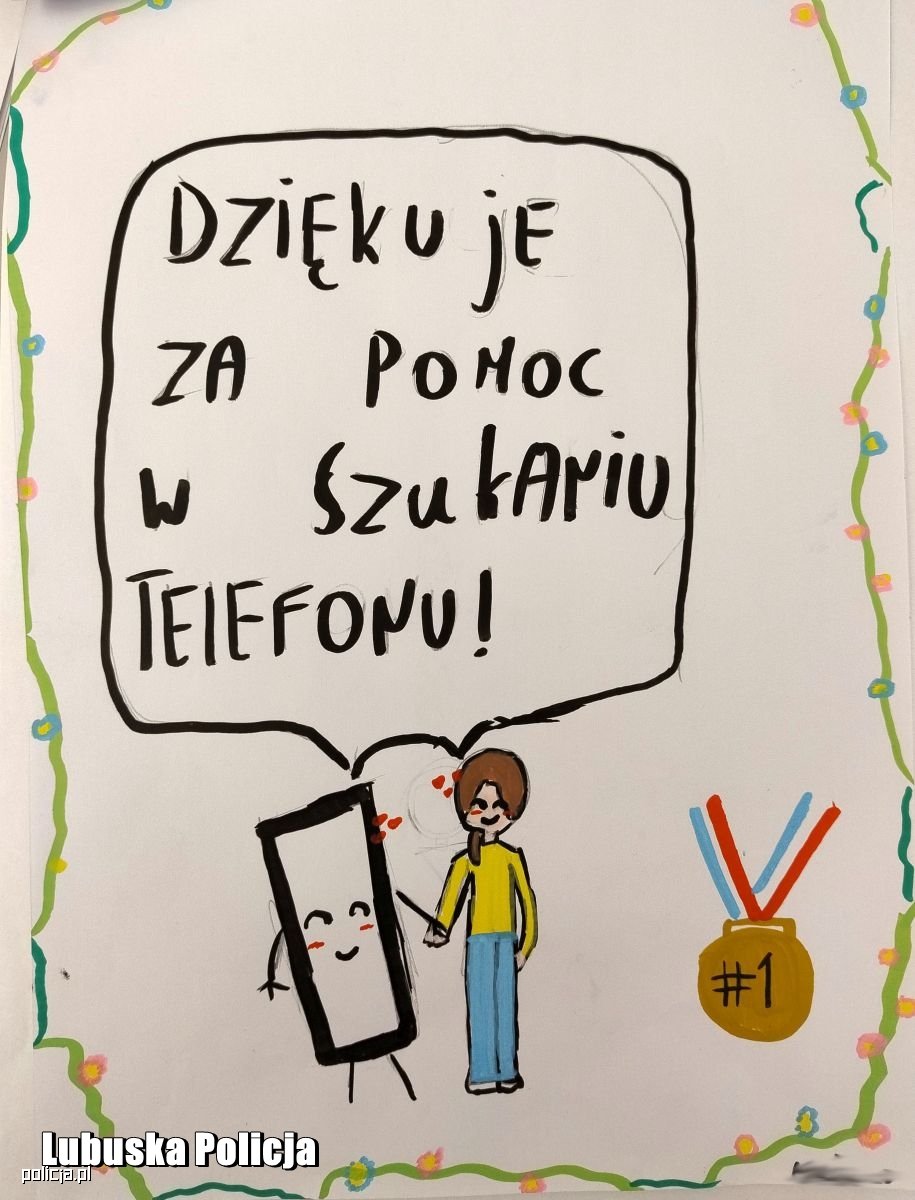 DZIĘKUJE
ZA POMOC
W SZUKANIU
TELEFONU!
#1
Lubuska Policja
policja.pl